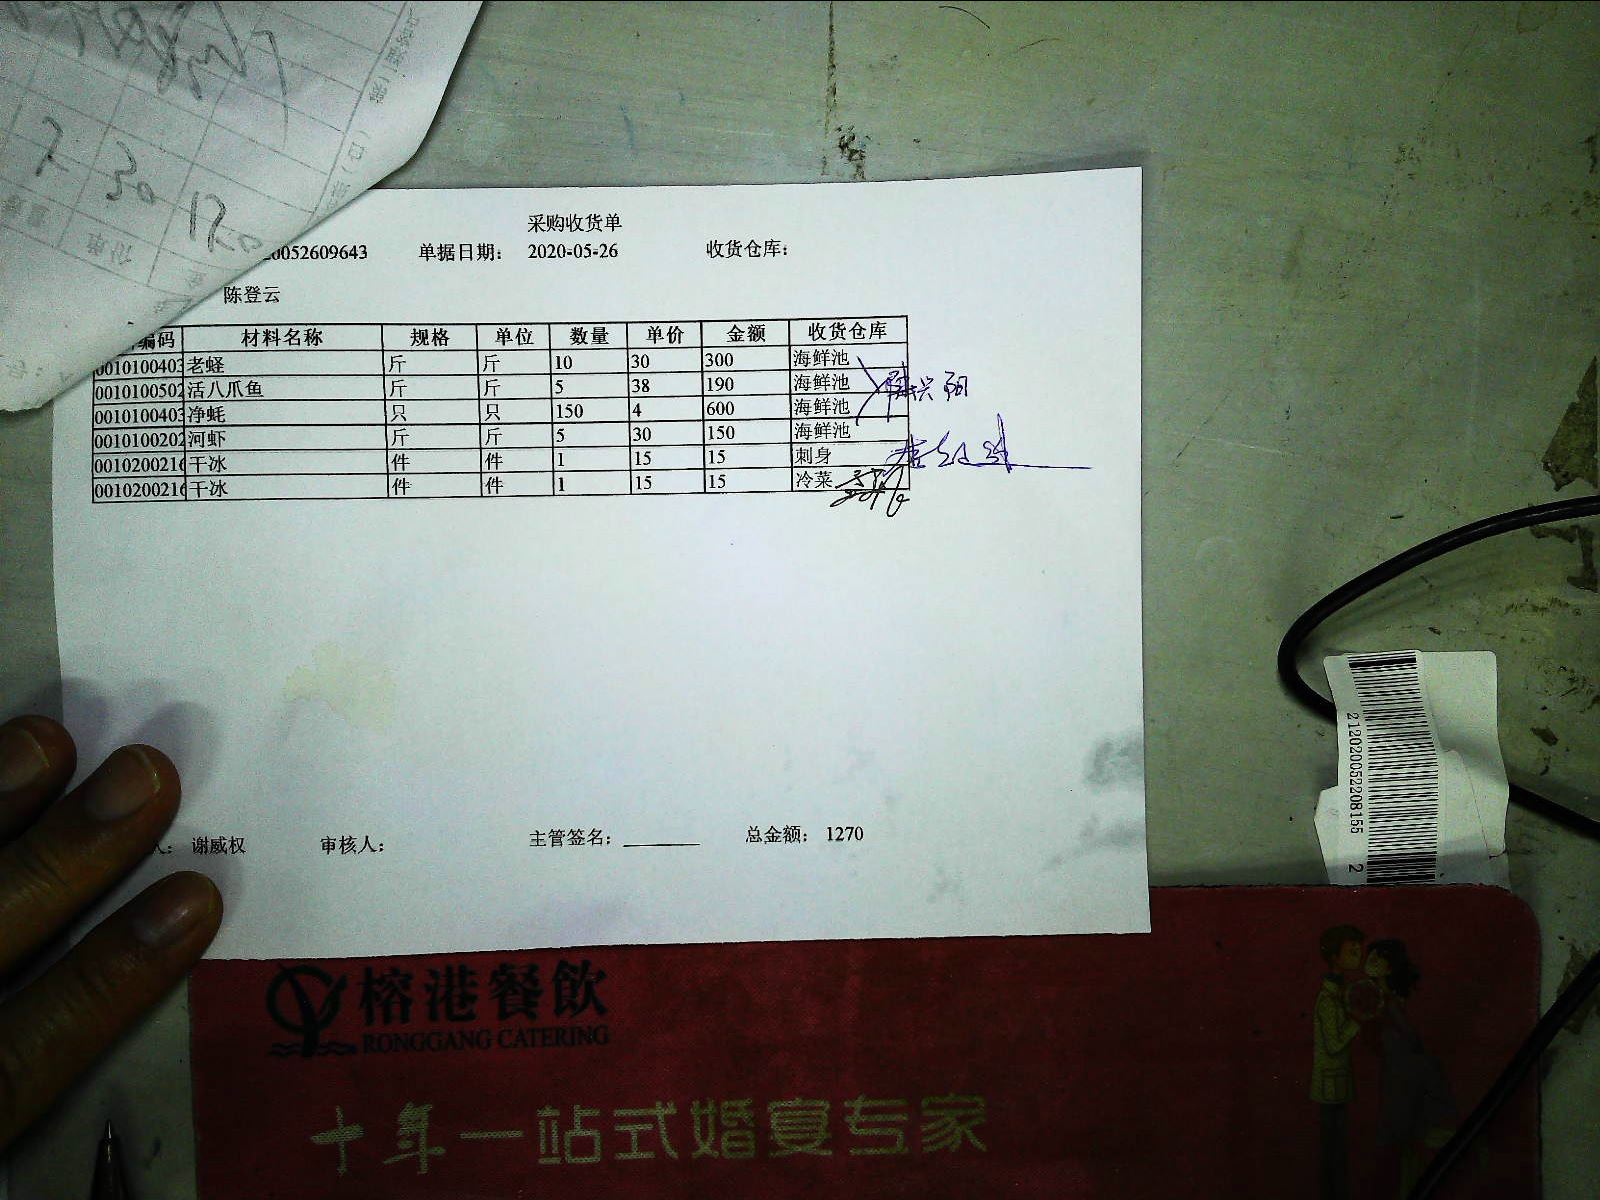 2 30 1520
采购收货单
20052609643 单据日期: 2020-05-26 收货仓库:
陈登云
编码 材料名称 规格 单位 数量 单价 金额 收货仓库
0010100403 老蛏 斤 斤 10 30 300 海鲜池
0010100502 活八爪鱼 斤 斤 5 38 190 海鲜池
0010100403 净蚝 只 只 150 4 600 海鲜池
0010100202 河虾 斤 斤 5 30 150 海鲜池
0010200216 干冰 件 件 1 15 15 刺身
0010200216 干冰 件 件 1 15 15 冷菜
人: 谢威权 审核人: 主管签名: 总金额: 1270
2120200522208155 2
榕港餐飲
RONGGANG CATERING
十年一站式婚宴专家